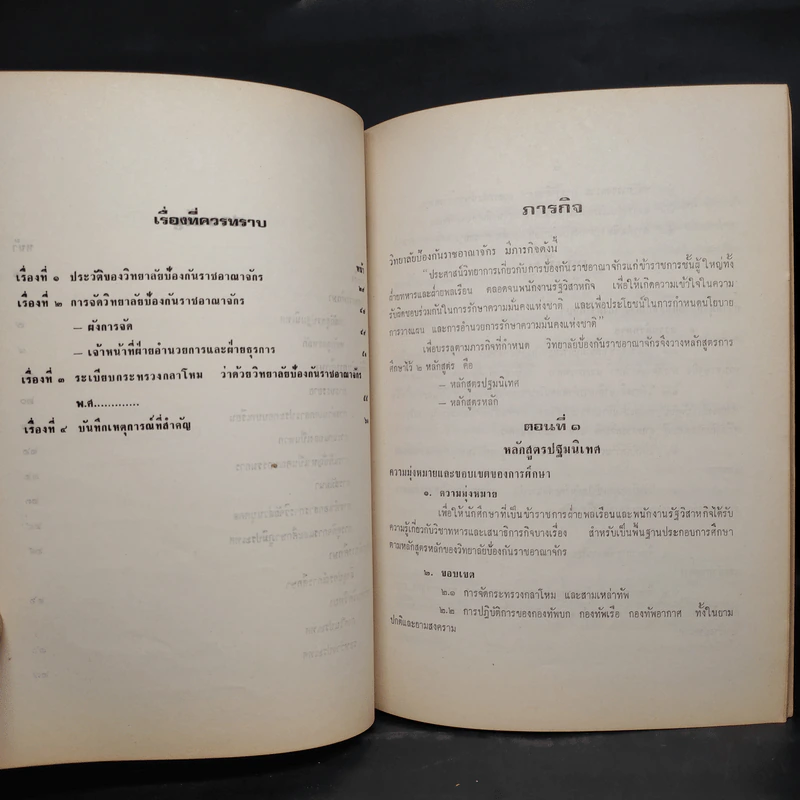 เรื่องที่ควรทราบ
หน้า
เรื่องที่ ๑ ประวัติของวิทยาลัยป้องกันราชอาณาจักร
เรื่องที่ ๒ การจัดวิทยาลัยป้องกันราชอาณาจักร
— ผังการจัด
— เจ้าหน้าที่ฝ่ายอำนวยการและฝ่ายธุรการ
เรื่องที่ ๓ ระเบียบกระทรวงกลาโหม ว่าด้วยวิทยาลัยป้องกันราชอาณาจักร
พ.ศ.............
เรื่องที่ ๔ บันทึกเหตุการณ์ที่สำคัญ
ภารกิจ
วิทยาลัยป้องกันราชอาณาจักร มีภารกิจดังนี้
"ประศาสน์วิทยาการเกี่ยวกับการป้องกันราชอาณาจักรแก่ข้าราชการชั้นผู้ใหญ่ทั้ง
ฝ่ายทหารและฝ่ายพลเรือน ตลอดจนพนักงานรัฐวิสาหกิจ เพื่อให้เกิดความเข้าใจในความ
รับผิดชอบร่วมกันในการรักษาความมั่นคงแห่งชาติ และเพื่อประโยชน์ในการกำหนดนโยบาย
การวางแผน และการอำนวยการรักษาความมั่นคงแห่งชาติ"
เพื่อบรรลุตามภารกิจที่กำหนด วิทยาลัยป้องกันราชอาณาจักรจึงวางหลักสูตรการ
ศึกษาไว้ ๒ หลักสูตร คือ
— หลักสูตรปฐมนิเทศ
— หลักสูตรหลัก
ตอนที่ ๑
หลักสูตรปฐมนิเทศ
ความมุ่งหมายและขอบเขตของการศึกษา
๑. ความมุ่งหมาย
เพื่อให้นักศึกษาที่เป็นข้าราชการฝ่ายพลเรือนและพนักงานรัฐวิสาหกิจได้รับ
ความรู้เกี่ยวกับวิชาทหารและเสนาธิการกิจบางเรื่อง สำหรับเป็นพื้นฐานประกอบการศึกษา
ตามหลักสูตรหลักของวิทยาลัยป้องกันราชอาณาจักร
๒. ขอบเขต
๒.๑ การจัดกระทรวงกลาโหม และสามเหล่าทัพ
๒.๒ การปฏิบัติการของกองทัพบก กองทัพเรือ กองทัพอากาศ ทั้งในยาม
ปกติและยามสงคราม